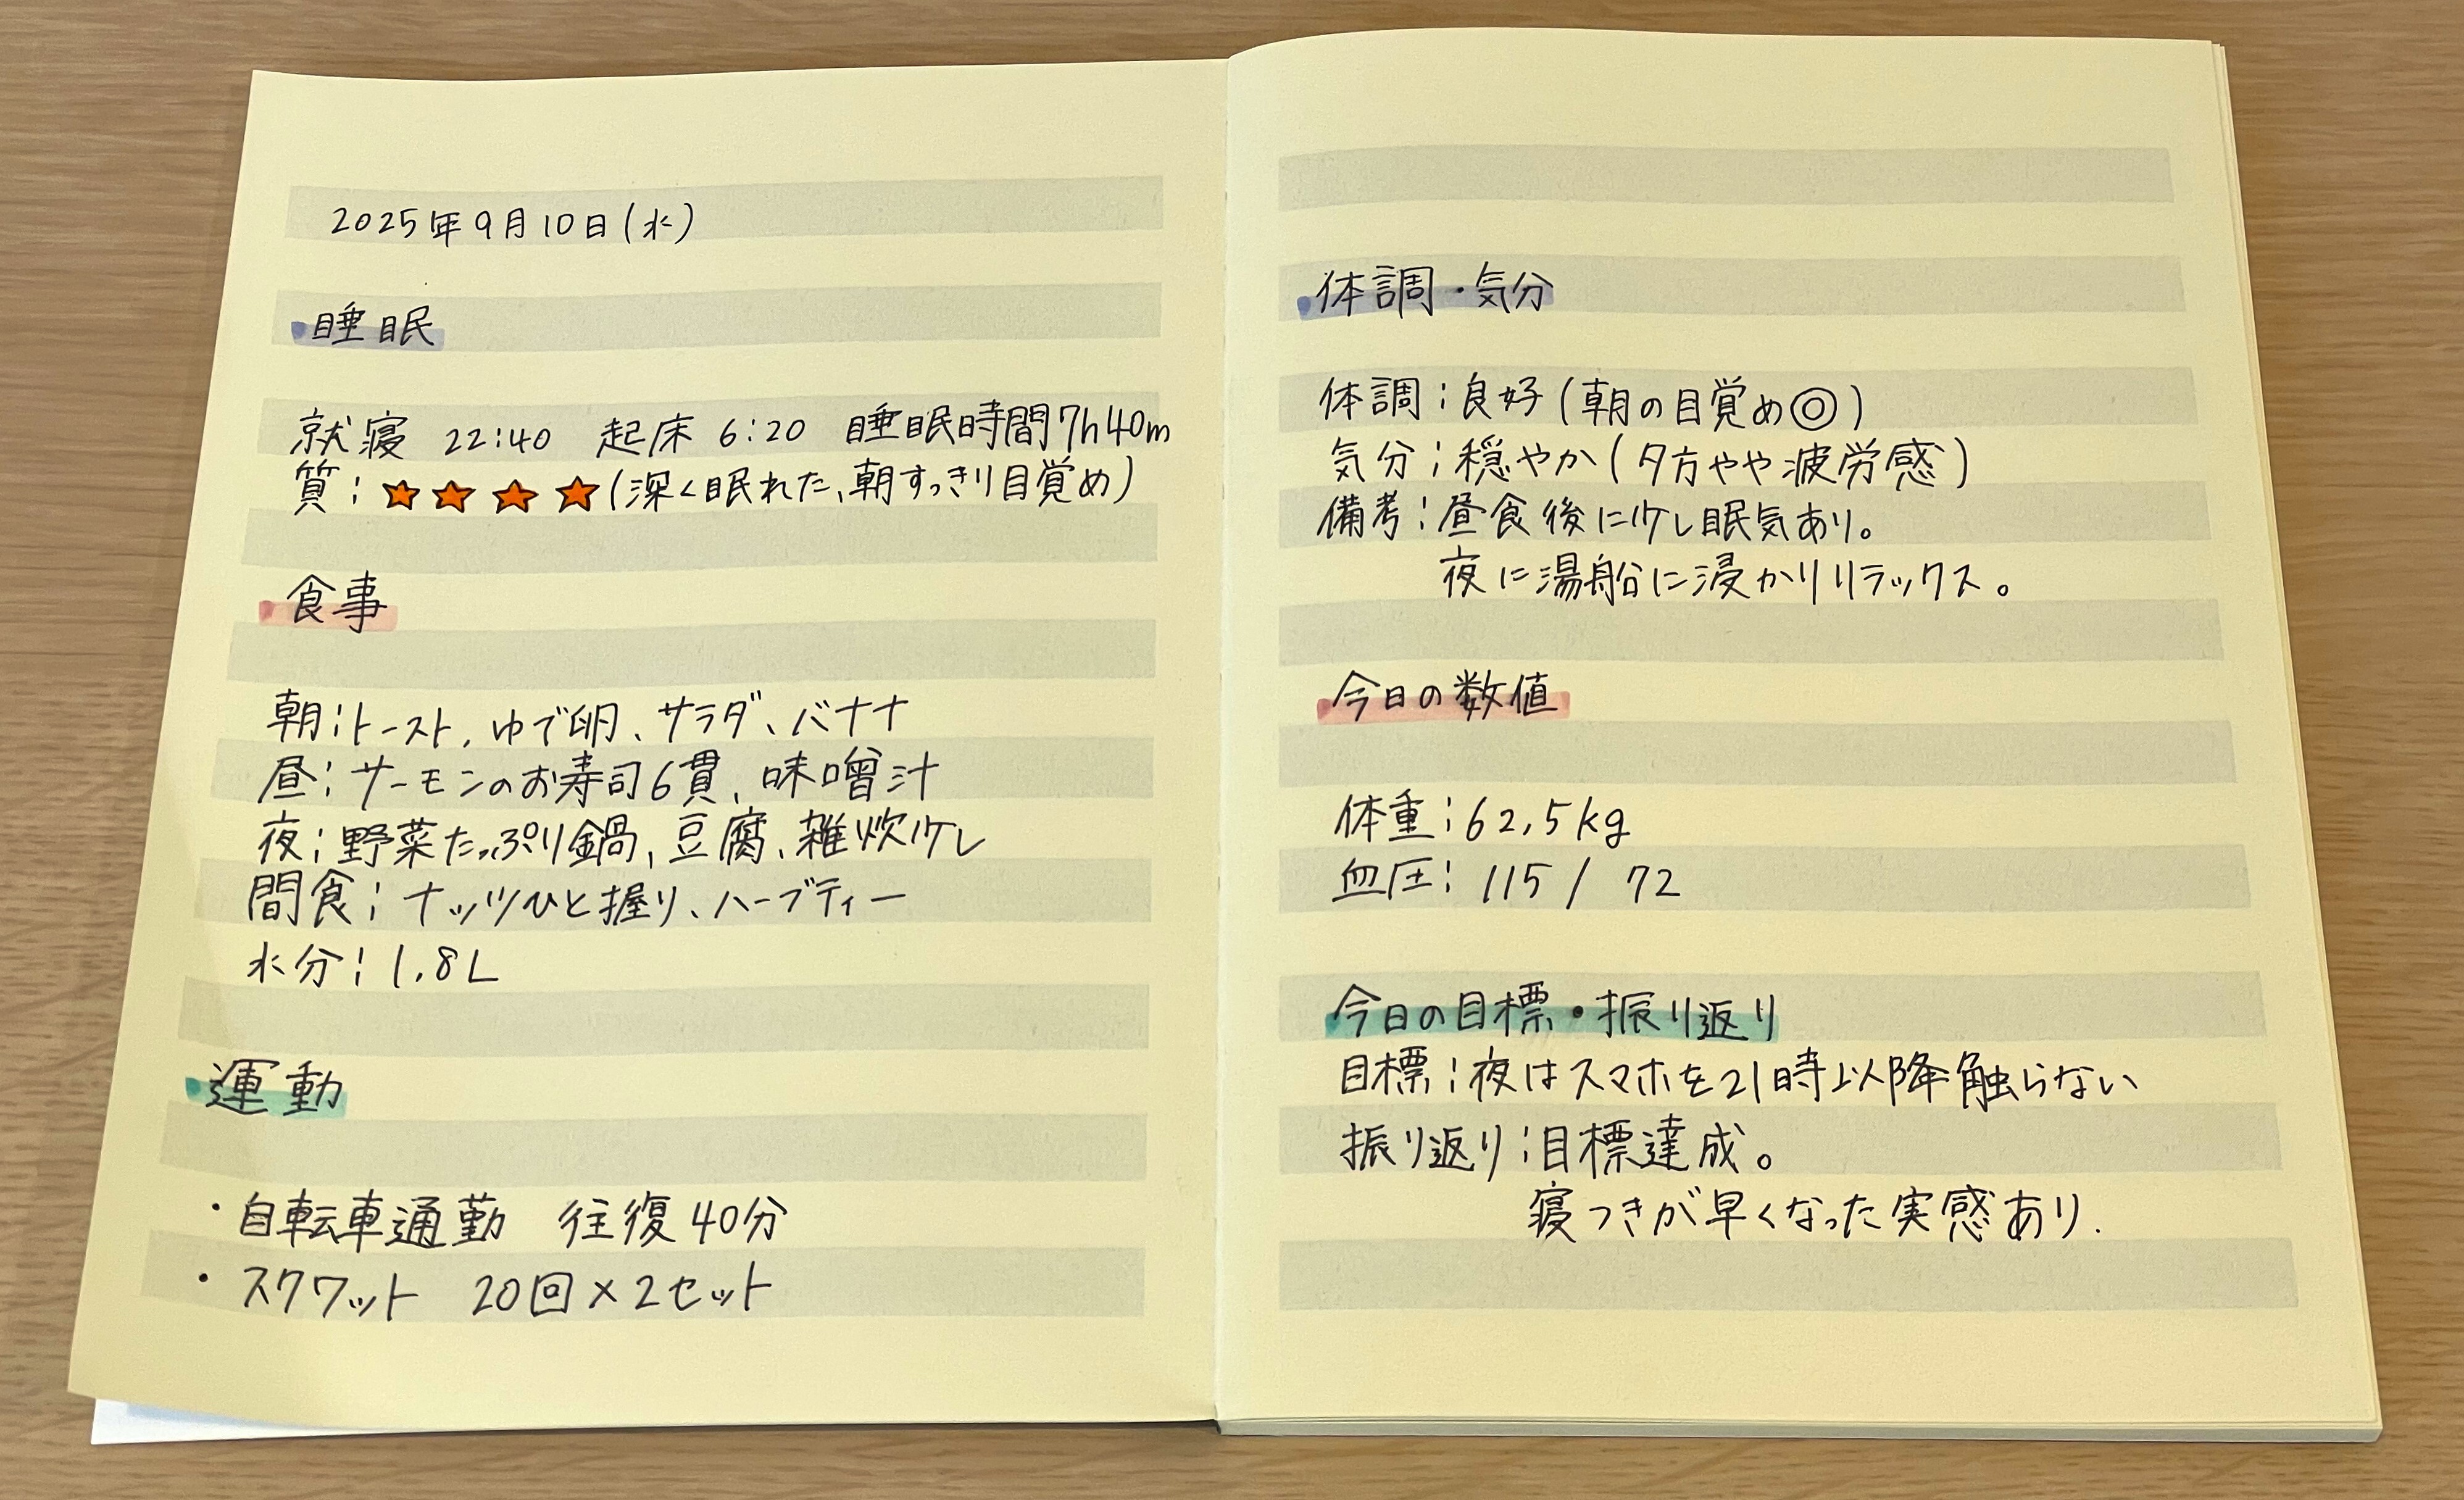 2025年9月10日(水)
睡眠
就寝 22:40 起床 6:20 睡眠時間7h40m
質:★★★★(深く眠れた、朝すっきり目覚め)
食事
朝:トースト、ゆで卵、サラダ、バナナ
昼:サーモンのお寿司6貫、味噌汁
夜:野菜たっぷり鍋、豆腐、雑炊少し
間食:ナッツひと握り、ハーブティー
水分:1.8L
運動
・自転車通勤 往復40分
・スクワット 20回×2セット
体調・気分
体調:良好(朝の目覚め◎)
気分:穏やか(夕方やや疲労感)
備考:昼食後に少し眠気あり。
夜に湯船に浸かりリラックス。
今日の数値
体重:62.5kg
血圧:115/72
今日の目標・振り返り
目標:夜はスマホを21時以降触らない
振り返り:目標達成。
寝つきが早くなった実感あり.